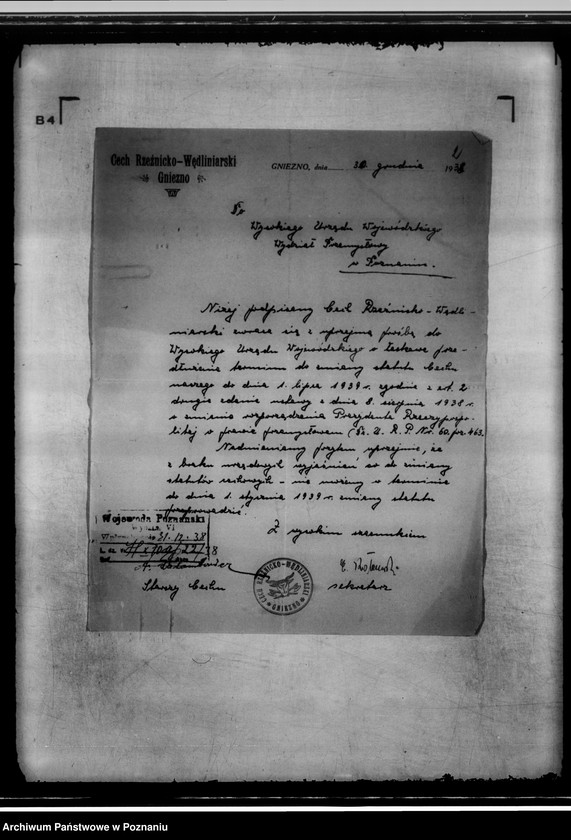 B4
2
Cech Rzeźnicko-Wędliniarski
Gniezno
GNIEZNO, dnia 30 grudnia 1938
Do
Wysokiego Urzędu Wojewódzkiego
Wydział Przemysłowy
w Poznaniu.
Niżej podpisany Cech Rzeźnicko-Wędli-
niarski zwraca się z uprzejmą prośbą do
Wysokiego Urzędu Wojewódzkiego o łaskawe prze-
dłużenie terminu do zmiany statutu Cechu
naszego do dnia 1. lipca 1939 r. zgodnie z art. 2
drugie zdanie ustawy z dnia 8. sierpnia 1938 r.
o zmianie rozporządzenia Prezydenta Rzeczypospo-
litej o prawie przemysłowem (Dz. U. R. P. Nr. 60. poz 463.
Nadmieniamy przytem uprzejmie, że
z braku urzędowych wyjaśnień co do zmiany
statutów cechowych - nie możemy w terminie
do dnia 1. stycznia 1939 r. zmiany statutu
przeprowadzić.
Z wysokim szacunkiem
Wojewoda Poznański
31. 12. 38
Starszy Cechu
sekretarz
CECH RZEŹNICKO-WĘDLINIARSKI
GNIEZNO
Archiwum Państwowe w Poznaniu